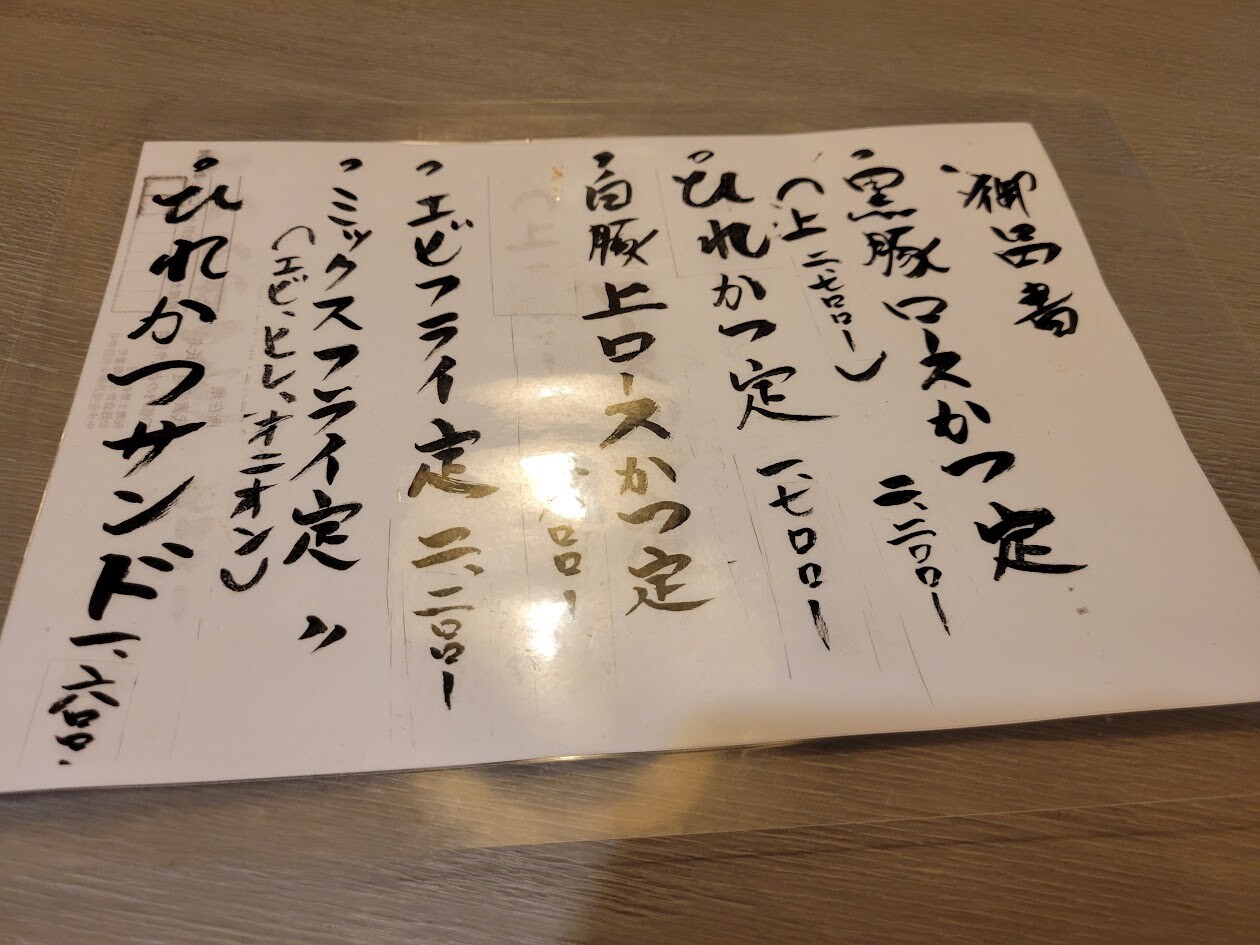 御品書
・黒豚ロースかつ定
二、二〇〇ー
(上 二、七〇〇ー)
・ひれかつ定 一、七〇〇ー
・白豚上ロースかつ定
八〇〇ー
・エビフライ定 二、二〇〇ー
・ミックスフライ定 〃
(エビ、ヒレ、オニオン)
・ひれかつサンド 一、六〇〇.